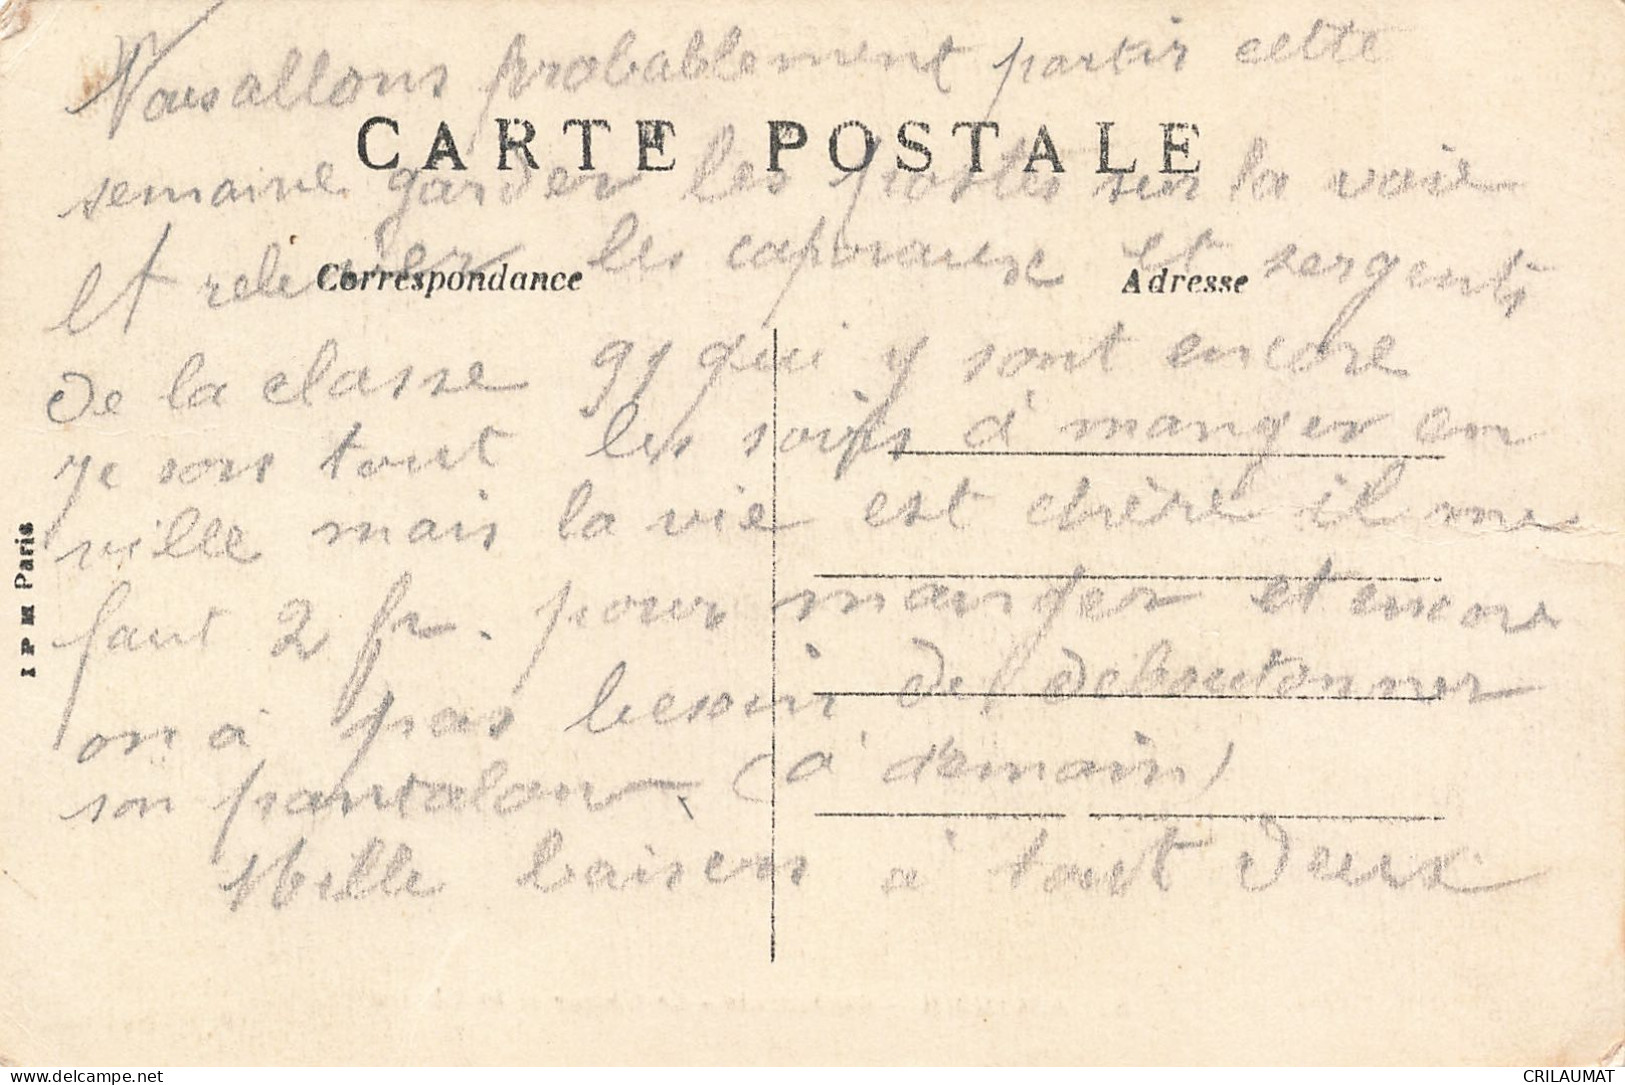 Nous allons probablement partir cette
CARTE POSTALE
semaine garder les postes sur la voie
et relever les caporaux et sergents
Correspondance
Adresse
de la classe 91 qui y sont encore
je sors tout les soirs à manger en
ville mais la vie est chère il me
faut 2 fr. pour manger et encore
on a pas besoin de déboutonner
son pantalon (à demain)
Mille baisers à tout deux
I P M Paris
CRILAUMAT